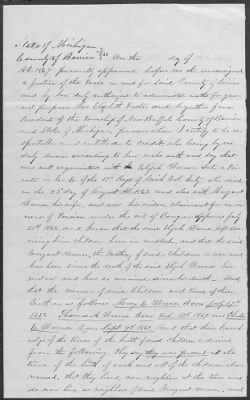 State of Michigan
County of Berrien } ss On this day of
A.D. 1867 Personally appeared before me the undersigned
a Justice of the Peace in and for said County of Berrien
and by law duly authorized to administer oaths for gen
eral purposes Mrs Elizabeth and Cynthia
Resident of the Township of New Buffalo County of Berrien
and State of Michigan, persons whom I certify to be res
pectable and entitled to credit who being by me
duly sworn according to law do each say that they
were well acquainted with Elijah Warner late a Pri
vate in Co. of the 12th Regt of Mich Vol Inft who died
on the 23d day of August A.D. 1863 and also with Margaret
Warner his wife, and now his widow, claimant for in
crease of Pension under the act of Congress approved July
25th 1866 and know that the said Elijah Warner left sur
viving him children born in wedlock, and that the said
Margaret Warner, the Mother of said Children is now and
has been since the death of the said Elijah Warner his
widow and has so remained since his death. And
that the names of said Children and times of their
Birth are as follows Henry E. Warner Born July 27th
Thomas A. Warner Born Feb. 12th 1857 and Charles
E. Warner Born Sept. 1863 And that their knowl
edge of the times of the birth of said Children is derived
from the following. They say they were present at the
times of the birth of each and all of the children above
named, that they lived near neighbors at the time and
do now live as neighbors of said Margaret Warner, and